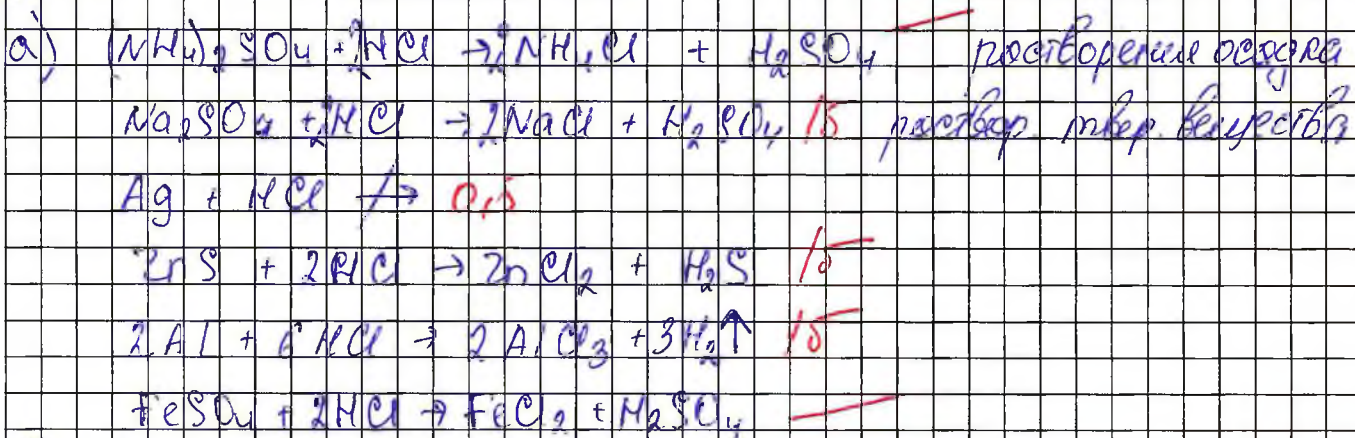 а) (NH₄)₂SO₄ + 2HCl → 2NH₄Cl + H₂SO₄ — растворения осадка
Na₂SO₄ + 2HCl → 2NaCl + H₂SO₄ 1б раствор. твер. вещества
Ag + HCl ↛ 0,5
ZnS + 2HCl → ZnCl₂ + H₂S 1б
2Al + 6HCl → 2AlCl₃ + 3H₂↑ 1б
FeSO₄ + 2HCl → FeCl₂ + H₂SO₄ —